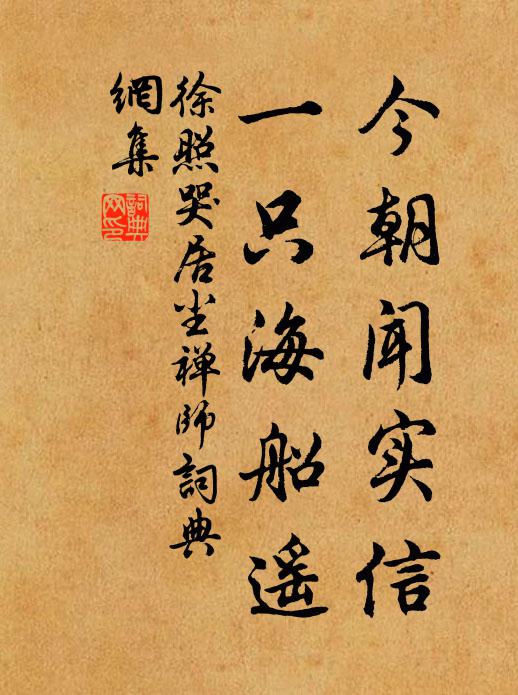 今朝闻实信
一只海船遥
徐照哭居尘禅师詞典
網集
詞典
网印